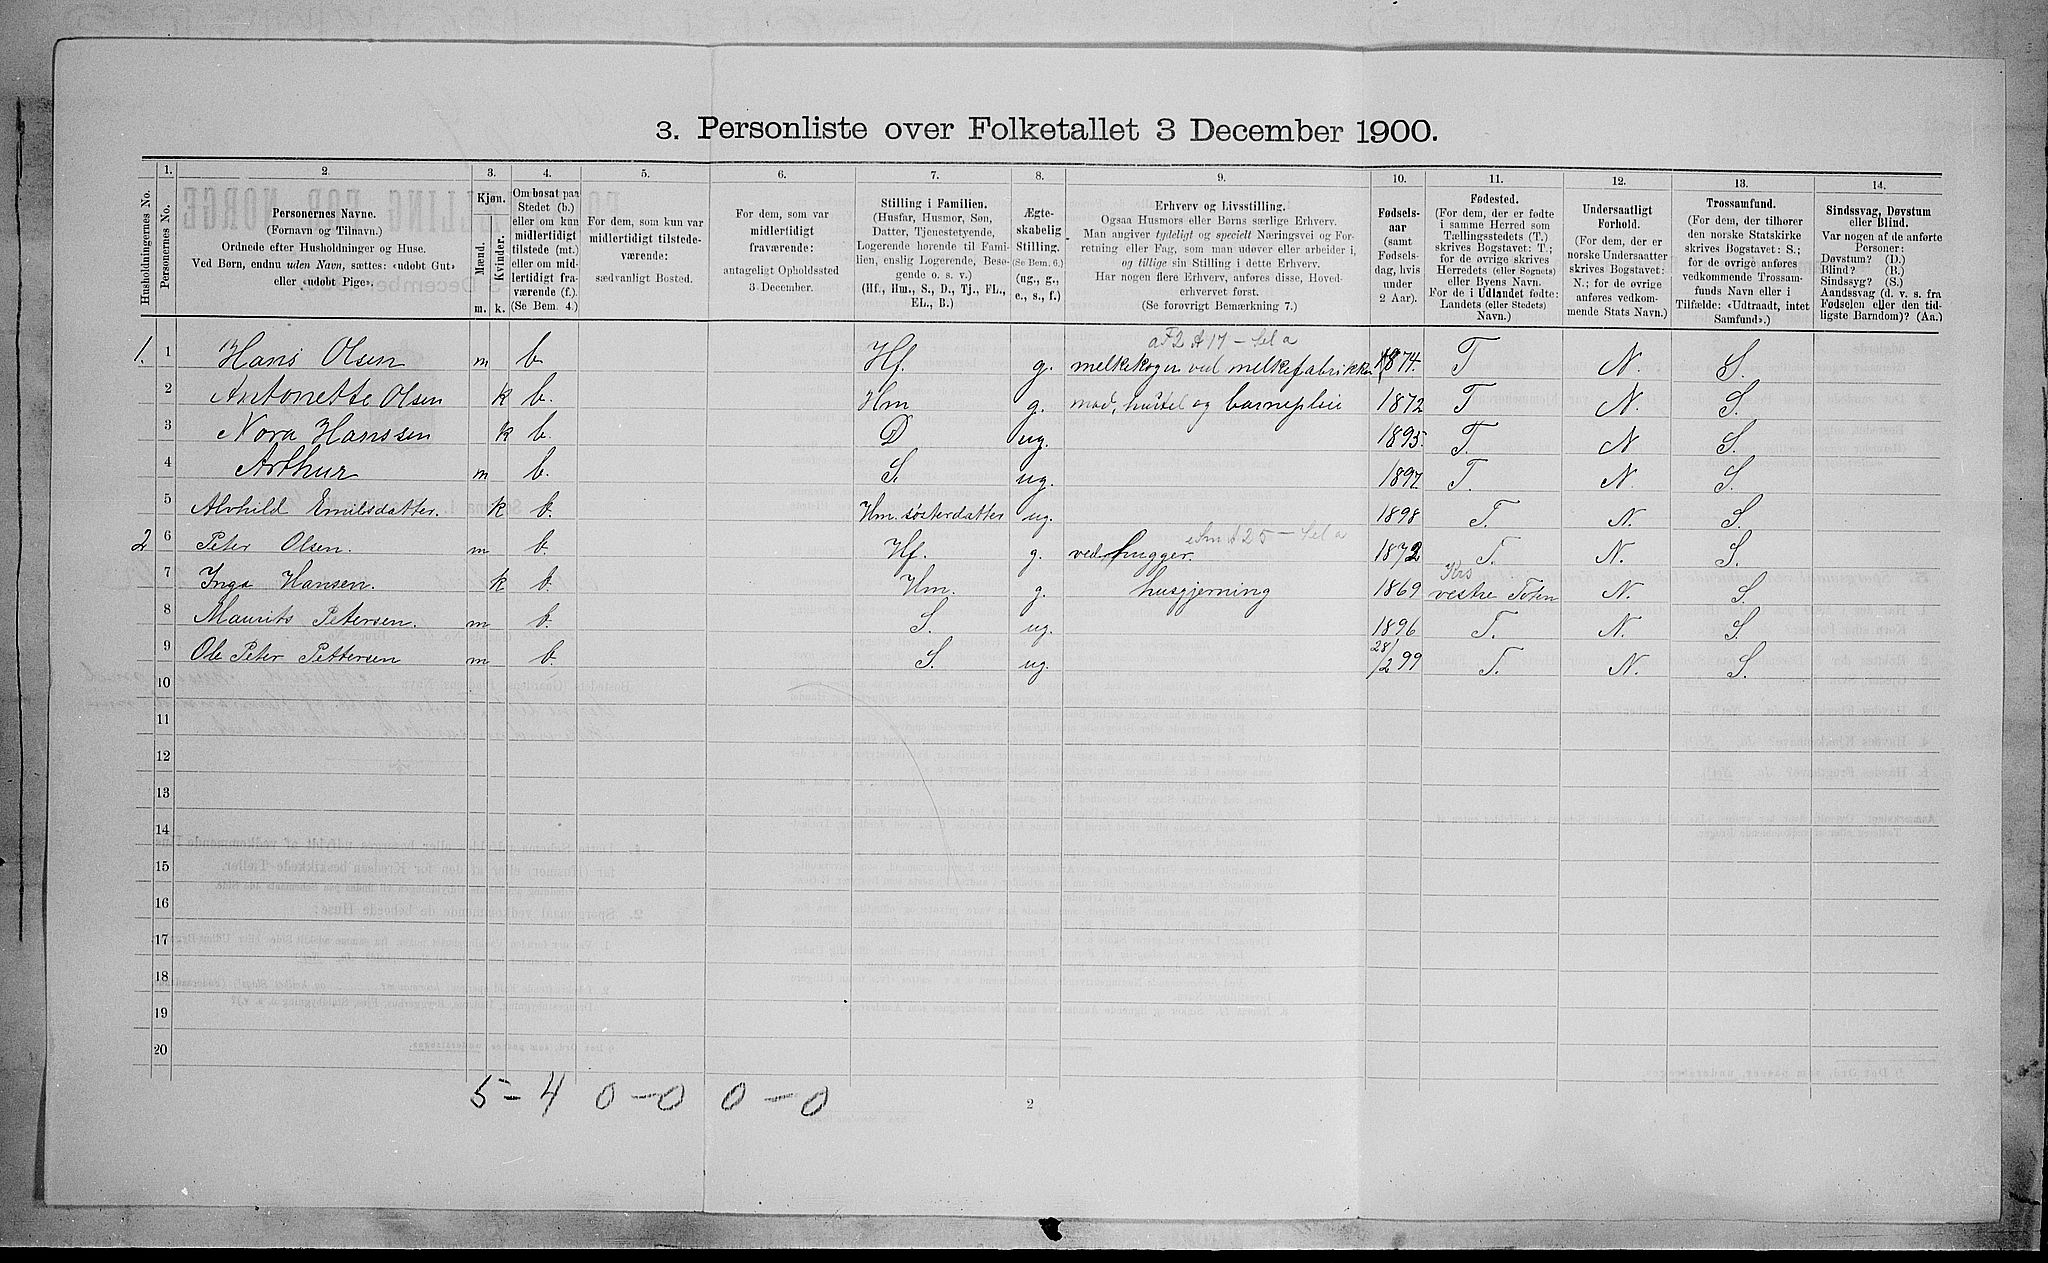 3. Personliste over Folketallet 3 December 1900.
Husholdningernes No.
1.
Personernes No.
2.
Personernes Navne.
(Fornavn og Tilnavn.)
Ordnede efter Husholdninger og Huse.
Ved Børn, endnu uden Navn, sættes: «udøbt Gut»
eller «udøbt Pige».
3.
Kjøn.
Mænd.
Kvinder.
m. k.
4.
Om bosat paa
Stedet (b.)
eller om kun
midlertidigt
tilstede (mt.)
eller om mid-
lertidigt fra-
værende (f.)
(Se Bem. 4.)
5.
For dem, som kun var
midlertidigt tilstede-
værende:
sædvanligt Bosted.
6.
For dem, som var
midlertidigt
fraværende:
antageligt Opholdssted
3 December.
7.
Stilling i Familien.
(Husfar, Husmor, Søn,
Datter, Tjenestetyende,
Logerende hørende til Fami-
lien, enslig Logerende, Besø-
gende o. s. v.)
(Hf., Hm., S., D., Tj., FL.,
EL., B.)
8.
Ægte-
skabelig
Stilling.
(Se Bem. 6.)
(ug., g.,
e., s., f.)
9.
Erhverv og Livsstilling.
Ogsaa Husmors eller Børns særlige Erhverv.
Man angiver tydeligt og specielt Næringsvei og For-
retning eller Fag, som man udøver eller arbeider i,
og tillige sin Stilling i dette Erhverv.
Har nogen flere Erhverv, anføres disse, Hoved-
erhvervet først.
(Se forøvrigt Bemærkning 7.)
10.
Fødsels-
aar
(samt
Fødsels-
dag, hvis
under
2 Aar).
11.
Fødested.
(For dem, der er fødte
i samme Herred som
Tællingsstedets (T.)
skrives Bogstavet: T.;
for de øvrige skrives
Herredets (eller Sognets)
eller Byens Navn.
For de i Udlandet fødte:
Landets (eller Stedets)
Navn.)
12.
Undersaatligt
Forhold.
(For dem, der er
norske Undersaatter
skrives Bogstavet:
N.; for de øvrige
anføres vedkom-
mende Stats Navn.)
13.
Trossamfund.
(For dem, der tilhører
den norske Statskirke
skrives Bogstavet: S.;
for de øvrige anføres
vedkommende Trossam-
funds Navn eller i
Tilfælde: «Udtraadt, intet
Samfund».)
14.
Sindssvag, Døvstum
eller Blind.
Var nogen af de anførte
Personer:
Døvstum? (D.)
Blind? (B.)
Sindssyg? (S.)
Aandssvag (d. v. s. fra
Fødselen eller den tid-
ligste Barndom)? (Aa.)
1. 1 Hans Olsen m b Hf. g. melkekoger ved melkefabrikken 1874. T N S.
2 Antonette Olsen k b. Hm g. mad, hustel og barnepleie 1872 T N. S.
3 Nora Hanssen k b. D ug. 1895. T. N S.
4 Arthur m b. S. ug. 1897. T. N. S.
5 Alvhild Emilsdatter. k b. Hm. søsterdatter ug. 1898 T. N. S.
2 6 Peter Olsen. m b. Hf. g. vedhugger. 1872 T. N. S.
7 Inga Hansen. k b. Hm. g. husgjerning 1869 vestre Toten N. S.
8 Maurits Petersen. m b. S. ug. 1896 T. N. S.
9 Ole Peter Pettersen m b. S. ug. 28/2 99 T. N. S.
10
11
12
13
14
15
16
17
18
19
20
5-4 0-0 0-0
2